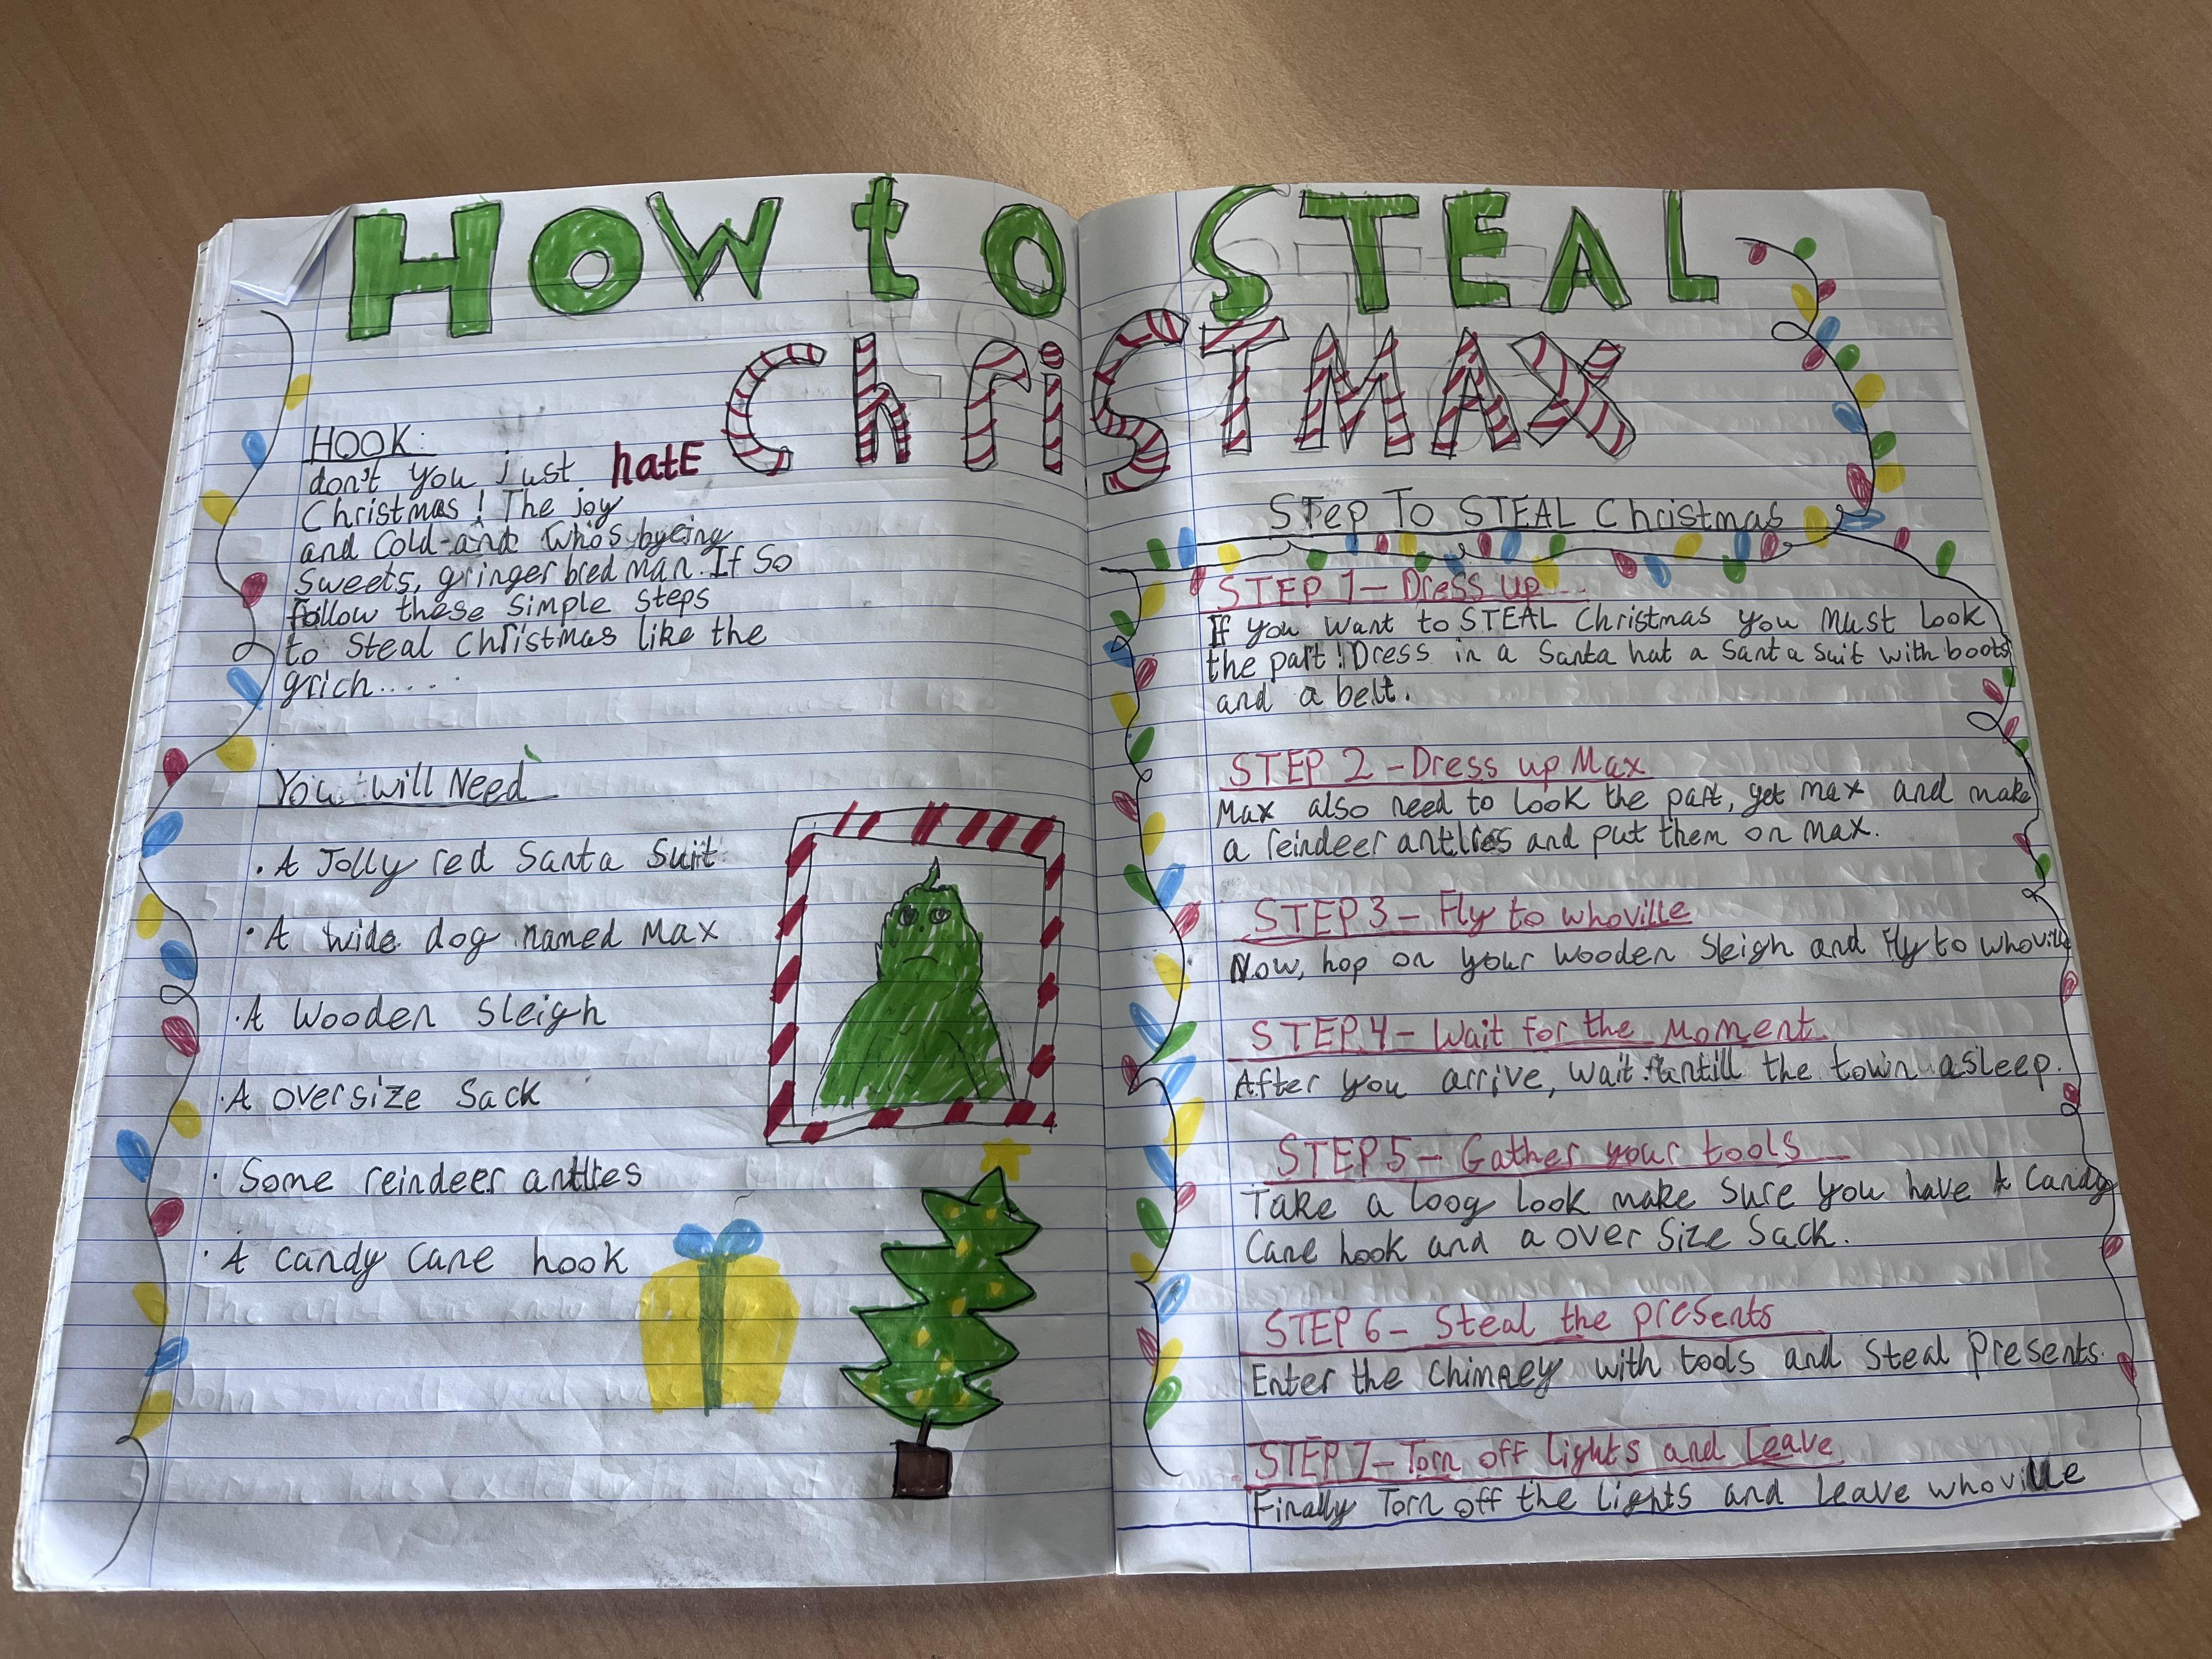 HOW to STEAL
ChriSTMAX
HOOK:
don't you just hatE
Christmas! The joy
and cold and who's byeing
Sweets, gringer bred man. If So
follow these simple steps
to Steal Christmas like the
grich.....
You will Need
· A Jolly red Santa Suit
· A wide dog named Max
· A Wooden Sleigh
· A oversize Sack
· Some reindeer antlies
· A candy cane hook
STep To STEAL Christmas
STEP 1 - Dress up
If you want to STEAL Christmas you must Look
the part! Dress in a Santa hat a Santa suit with boots
and a belt.
STEP 2 - Dress up Max
Max also need to Look the part, get max and make
a reindeer antlies and put them on max.
STEP 3 - Fly to whoville
Now, hop on your wooden Sleigh and Fly to whoville
STEP 4 - Wait For the Moment
After you arrive, wait untill the town asleep.
STEP 5 - Gather your tools
Take a loog look make sure you have A Candy
Cane hook and a over size Sack.
STEP 6 - Steal the presents
Enter the chimney with tools and Steal Presents.
STEP 7 - Torn off lights and Leave
Finally Torn off the lights and Leave whoville